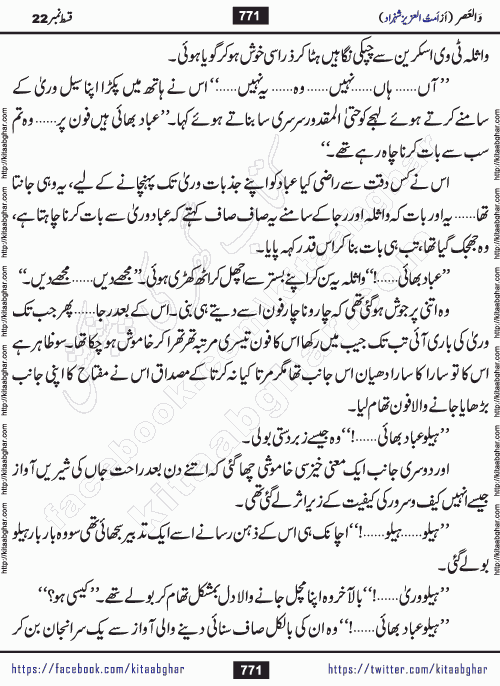 وَالعَصر (از اَمتُ العزیز شہزاد) 771 قسط نمبر 22
واثلہ ٹی وی اسکرین سے چپکی نگاہیں ہٹا کر ذرا سی خوش ہو کر گویا ہوئی۔
’’آں...... ہاں......نہیں...... وہ...... یہ نہیں......‘‘ اس نے ہاتھ میں پکڑا اپنا سیل وریٰ کے
سامنے کرتے ہوئے لہجے کو حتیٰ المقدور سرسری سا بناتے ہوئے کہا۔ ’’عباد بھائی ہیں فون پر...... وہ تم
سب سے بات کرنا چاہ رہے تھے۔‘‘
اس نے کس دقت سے راضی کیا عباد کو اپنے جذبات وریٰ تک پہنچانے کے لیے، یہ وہی جانتا
تھا...... یہ اور بات کہ واثلہ اور رجا کے سامنے یہ صاف صاف کہتے کہ عباد وریٰ سے بات کرنا چاہتا ہے،
وہ جھجک گیا تھا، تب ہی بات بنا کر اس قدر کہہ پایا۔
’’عباد بھائی......!‘‘ واثلہ یہ سن کر اپنے بستر سے اچھل کر اٹھ کھڑی ہوئی۔ ’’مجھے دیں...... مجھے دیں۔‘‘
وہ اتنی پر جوش ہو گئی تھی کہ چار و ناچار فون اسے دیتے ہی بنی۔ اس کے بعد رجا...... پھر جب تک
وریٰ کی باری آئی تب تک جیب میں رکھا اس کا فون تیسری مرتبہ تھرتھرا کر خاموش ہو چکا تھا۔ سو ظاہر ہے
اس کا تو سارا کا سارا دھیان اس جانب تھا مگر مرتا کیا نہ کرتا کے مصداق اس نے مفتاح کا اپنی جانب
بڑھایا جانے والا فون تھام لیا۔
’’ہیلو عباد بھائی......!‘‘ وہ جیسے زبردستی بولی۔
اور دوسری جانب ایک معنی خیز سی خاموشی چھا گئی کہ اتنے دن بعد راحت جاں کی شیریں آواز
جیسے انہیں کیف و سرور کی کیفیت کے زیر اثر لے گئی تھی۔
’’ہیلو...... ہیلو......!‘‘ اچانک ہی اس کے ذہن رسا نے اسے ایک تدبیر سجھائی تھی سو وہ بار بار ہیلو
بولے گئی۔
’’ہیلو وریٰ......!‘‘ بالآخر وہ اپنا مچل جانے والا دل بمشکل تھام کر بولے تھے۔ ’’کیسی ہو؟‘‘
’’ہیلو عباد بھائی......!‘‘ وہ ان کی بالکل صاف سنائی دینے والی آواز سے یک سر انجان بن کر
https://facebook.com/kitaabghar 771 https://twitter.com/kitaabghar
http://kitaabghar.com http://kitaabghar.com http://kitaabghar.com http://kitaabghar.com http://kitaabghar.com http://kitaabghar.com
http://kitaabghar.com http://kitaabghar.com http://kitaabghar.com http://kitaabghar.com http://kitaabghar.com http://kitaabghar.com